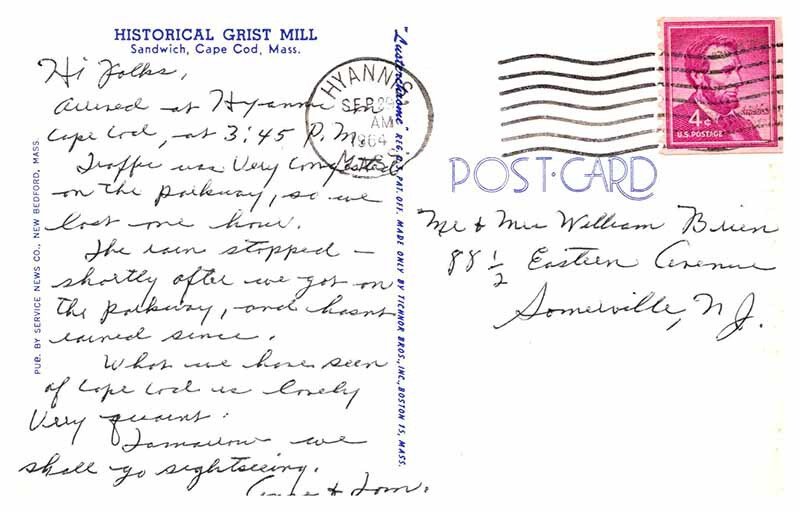 HISTORICAL GRIST MILL
Sandwich, Cape Cod, Mass.
Hi Folks,
Arrived at Hyannis on
Cape Cod, at 3:45 P.M.
Traffic was Very Congested
on the parkway, so we
lost one hour.
The rain stopped –
shortly after we got on
the parkway, and hasnt
rained since.
What we have seen
of Cape Cod is lovely
Very quaint.
Tomorrow we
shall go sightseeing.
& Tom.
PUB. BY SERVICE NEWS CO., NEW BEDFORD, MASS.
"Lusterchrome" REG. U.S. PAT. OFF. MADE ONLY BY TICHNOR BROS., INC., BOSTON 15, MASS.
HYANNIS
SEP 29
AM
1964
MASS
4¢
U.S. POSTAGE
POST-CARD
Mr & Mrs William Brien
88 1/2 Eastern Avenue
Somerville, N.J.